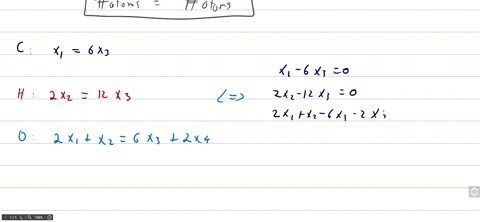 # atoms = # atoms
C: x₁ = 6x₃
H: 2x₂ = 12x₃
O: 2x₁ + x₂ = 6x₃ + 2x₄
<=>
x₁ - 6x₃ = 0
2x₂ - 12x₃ = 0
2x₁ + x₂ - 6x₃ - 2x